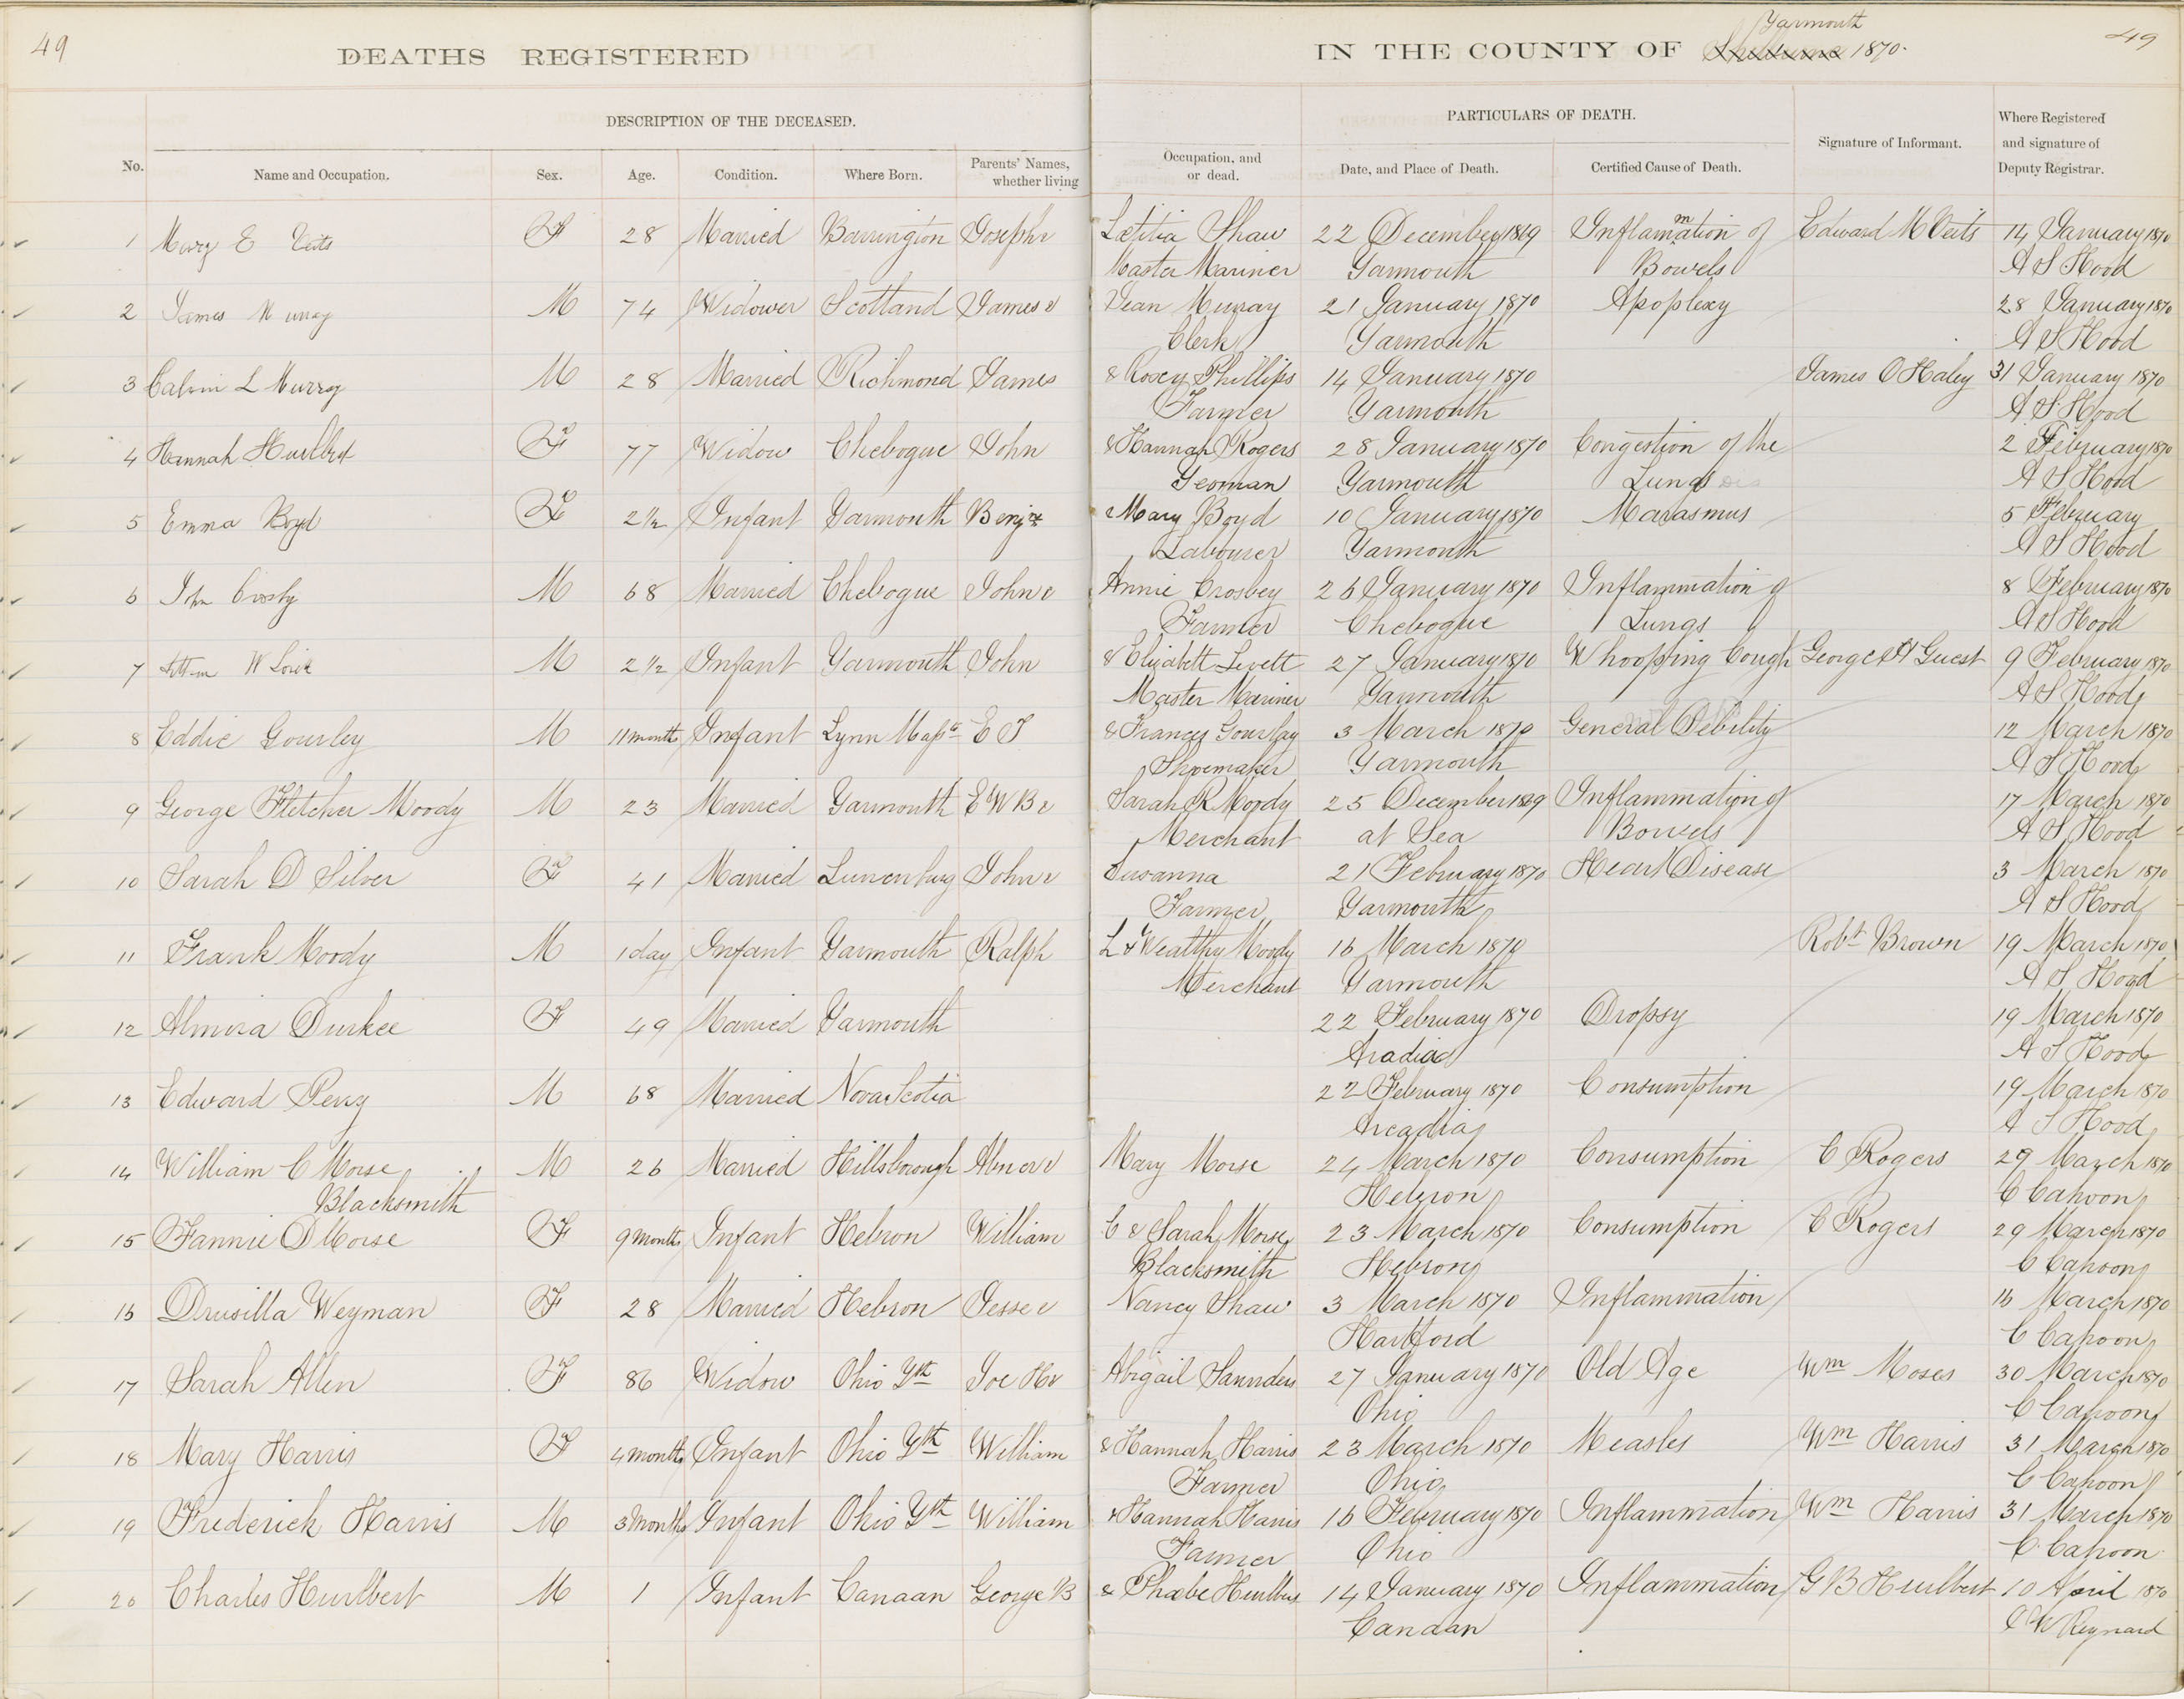 49
DEATHS REGISTERED
IN THE COUNTY OF Yarmouth 1870.
49
DESCRIPTION OF THE DECEASED.
PARTICULARS OF DEATH.
No. Name and Occupation. Sex. Age. Condition. Where Born. Parents' Names, whether living Occupation, and or dead. Date, and Place of Death. Certified Cause of Death. Signature of Informant. Where Registered and signature of Deputy Registrar.
1 Mary E Veits F 28 Married Barrington Joseph & Lætitia Shaw 22 December 1869 Inflammation of Edward M Veits 14 January 1870
Master Mariner Yarmouth Bowels A S Hood
2 James Murray M 74 Widower Scotland James & Jean Murray 21 January 1870 Apoplexy 28 January 1870
Clerk Yarmouth A S Hood
3 Calvin L Murray M 28 Married Richmond James & Roxey Phillips 14 January 1870 James O Haley 31 January 1870
Farmer Yarmouth A S Hood
4 Hannah Hurlbert F 77 Widow Chebogue John & Hannah Rogers 28 January 1870 Congestion of the 2 February 1870
Yeoman Yarmouth Lungs A S Hood
5 Emma Boyd F 2½ Infant Yarmouth Benjn & Mary Boyd 10 January 1870 Marasmus 5 February
Labourer Yarmouth A S Hood
6 John Crosby M 68 Married Chebogue John & Annie Crosbey 26 January 1870 Inflammation of 8 February 1870
Farmer Chebogue Lungs A S Hood
7 W M 2½ Infant Yarmouth John & Elizabeth Levett 27 January 1870 Whooping Cough George H Guest 9 February 1870
Master Mariner Yarmouth A S Hood
8 Eddie Gourley M 11 months Infant Lynn Masste E J & Frances Gourlay 3 March 1870 General Debility 12 March 1870
Shoemaker Yarmouth A S Hood
9 George Fletcher Moody M 23 Married Yarmouth E W B & Sarah R Moody 25 December 1869 Inflammation of 17 March 1870
Merchant at Sea Bowels A S Hood
10 Sarah D Silver F 41 Married Lunenburg John & Susanna 21 February 1870 Heart Disease 3 March 1870
Farmer Yarmouth A S Hood
11 Frank Moody M 1 day Infant Yarmouth Ralph L & Wealthy Moody 16 March 1870 Robt Brown 19 March 1870
Merchant Yarmouth A S Hood
12 Almira Durkee F 49 Married Yarmouth 22 February 1870 Dropsy 19 March 1870
Aradia A S Hood
13 Edward Perry M 68 Married Nova Scotia 22 February 1870 Consumption 19 March 1870
Arcadia A S Hood
14 William C Morse M 26 Married Hillsborough Abner & Mary Morse 24 March 1870 Consumption C Rogers 29 March 1870
Blacksmith Hebron C Cahoon
15 Fannie D Morse F 9 months Infant Hebron William C & Sarah Morse 23 March 1870 Consumption C Rogers 29 March 1870
Blacksmith Hebron C Cahoon
16 Drusilla Weyman F 28 Married Hebron Jesse & Nancy Shaw 3 March 1870 Inflammation 16 March 1870
Hartford C Cahoon
17 Sarah Allen F 86 Widow Ohio Yth Joe H & Abigail Saunders 27 January 1870 Old Age Wm Moses 30 March 1870
Ohio C Cahoon
18 Mary Harris F 4 months Infant Ohio Yth William & Hannah Harris 23 March 1870 Measles Wm Harris 31 March 1870
Farmer Ohio C Cahoon
19 Frederick Harris M 3 months Infant Ohio Yth William & Hannah Harris 16 February 1870 Inflammation Wm Harris 31 March 1870
Farmer Ohio C Cahoon
20 Charles Hurlbert M 1 Infant Canaan George B & Phœbe Hurlbert 14 January 1870 Inflammation G B Hurlbert 10 April 1870
Canaan W Reynard